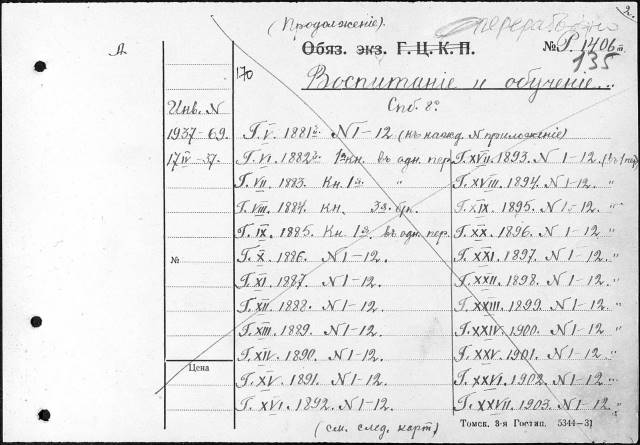 2.
(Продолженiе).
переработано
Обяз. экз. Г. Ц. К. П.
№ Р. 1406 т.
135
А
170
Воспитанiе и обученiе...
Спб. 8°
Инв. N
1937-69.
17IV-37.
Г. V. 1881г. N 1-12 (къ кажд. N приложенiе)
Г. VI. 1882г. 1з кн. въ одн. пер.
Г. VII. 1883. Кн. 1з "
Г. VIII. 1884. Кн. 3з. бр.
Г. IX. 1885. Кн. 1з въ одн. пер.
№
Г. X. 1886. N 1-12.
Г. XI. 1887. N 1-12.
Г. XII. 1888. N 1-12.
Г. XIII. 1889. N 1-12.
Г. XIV. 1890. N 1-12.
Цена
Г. XV. 1891. N 1-12.
Г. XVI. 1892. N 1-12.
Г. XVII. 1893. N 1-12. (въ 1 пер.)
Г. XVIII. 1894. N 1-12. "
Г. XIX. 1895. N 1-12. "
Г. XX. 1896. N 1-12. "
Г. XXI. 1897. N 1-12. "
Г. XXII. 1898. N 1-12. "
Г. XXIII. 1899. N 1-12. "
Г. XXIV. 1900. N 1-12. "
Г. XXV. 1901. N 1-12. "
Г. XXVI. 1902. N 1-12. "
Г. XXVII. 1903. N 1-12. "
(см. след. карт)
Томск. 3-я Гостип. 5344-31